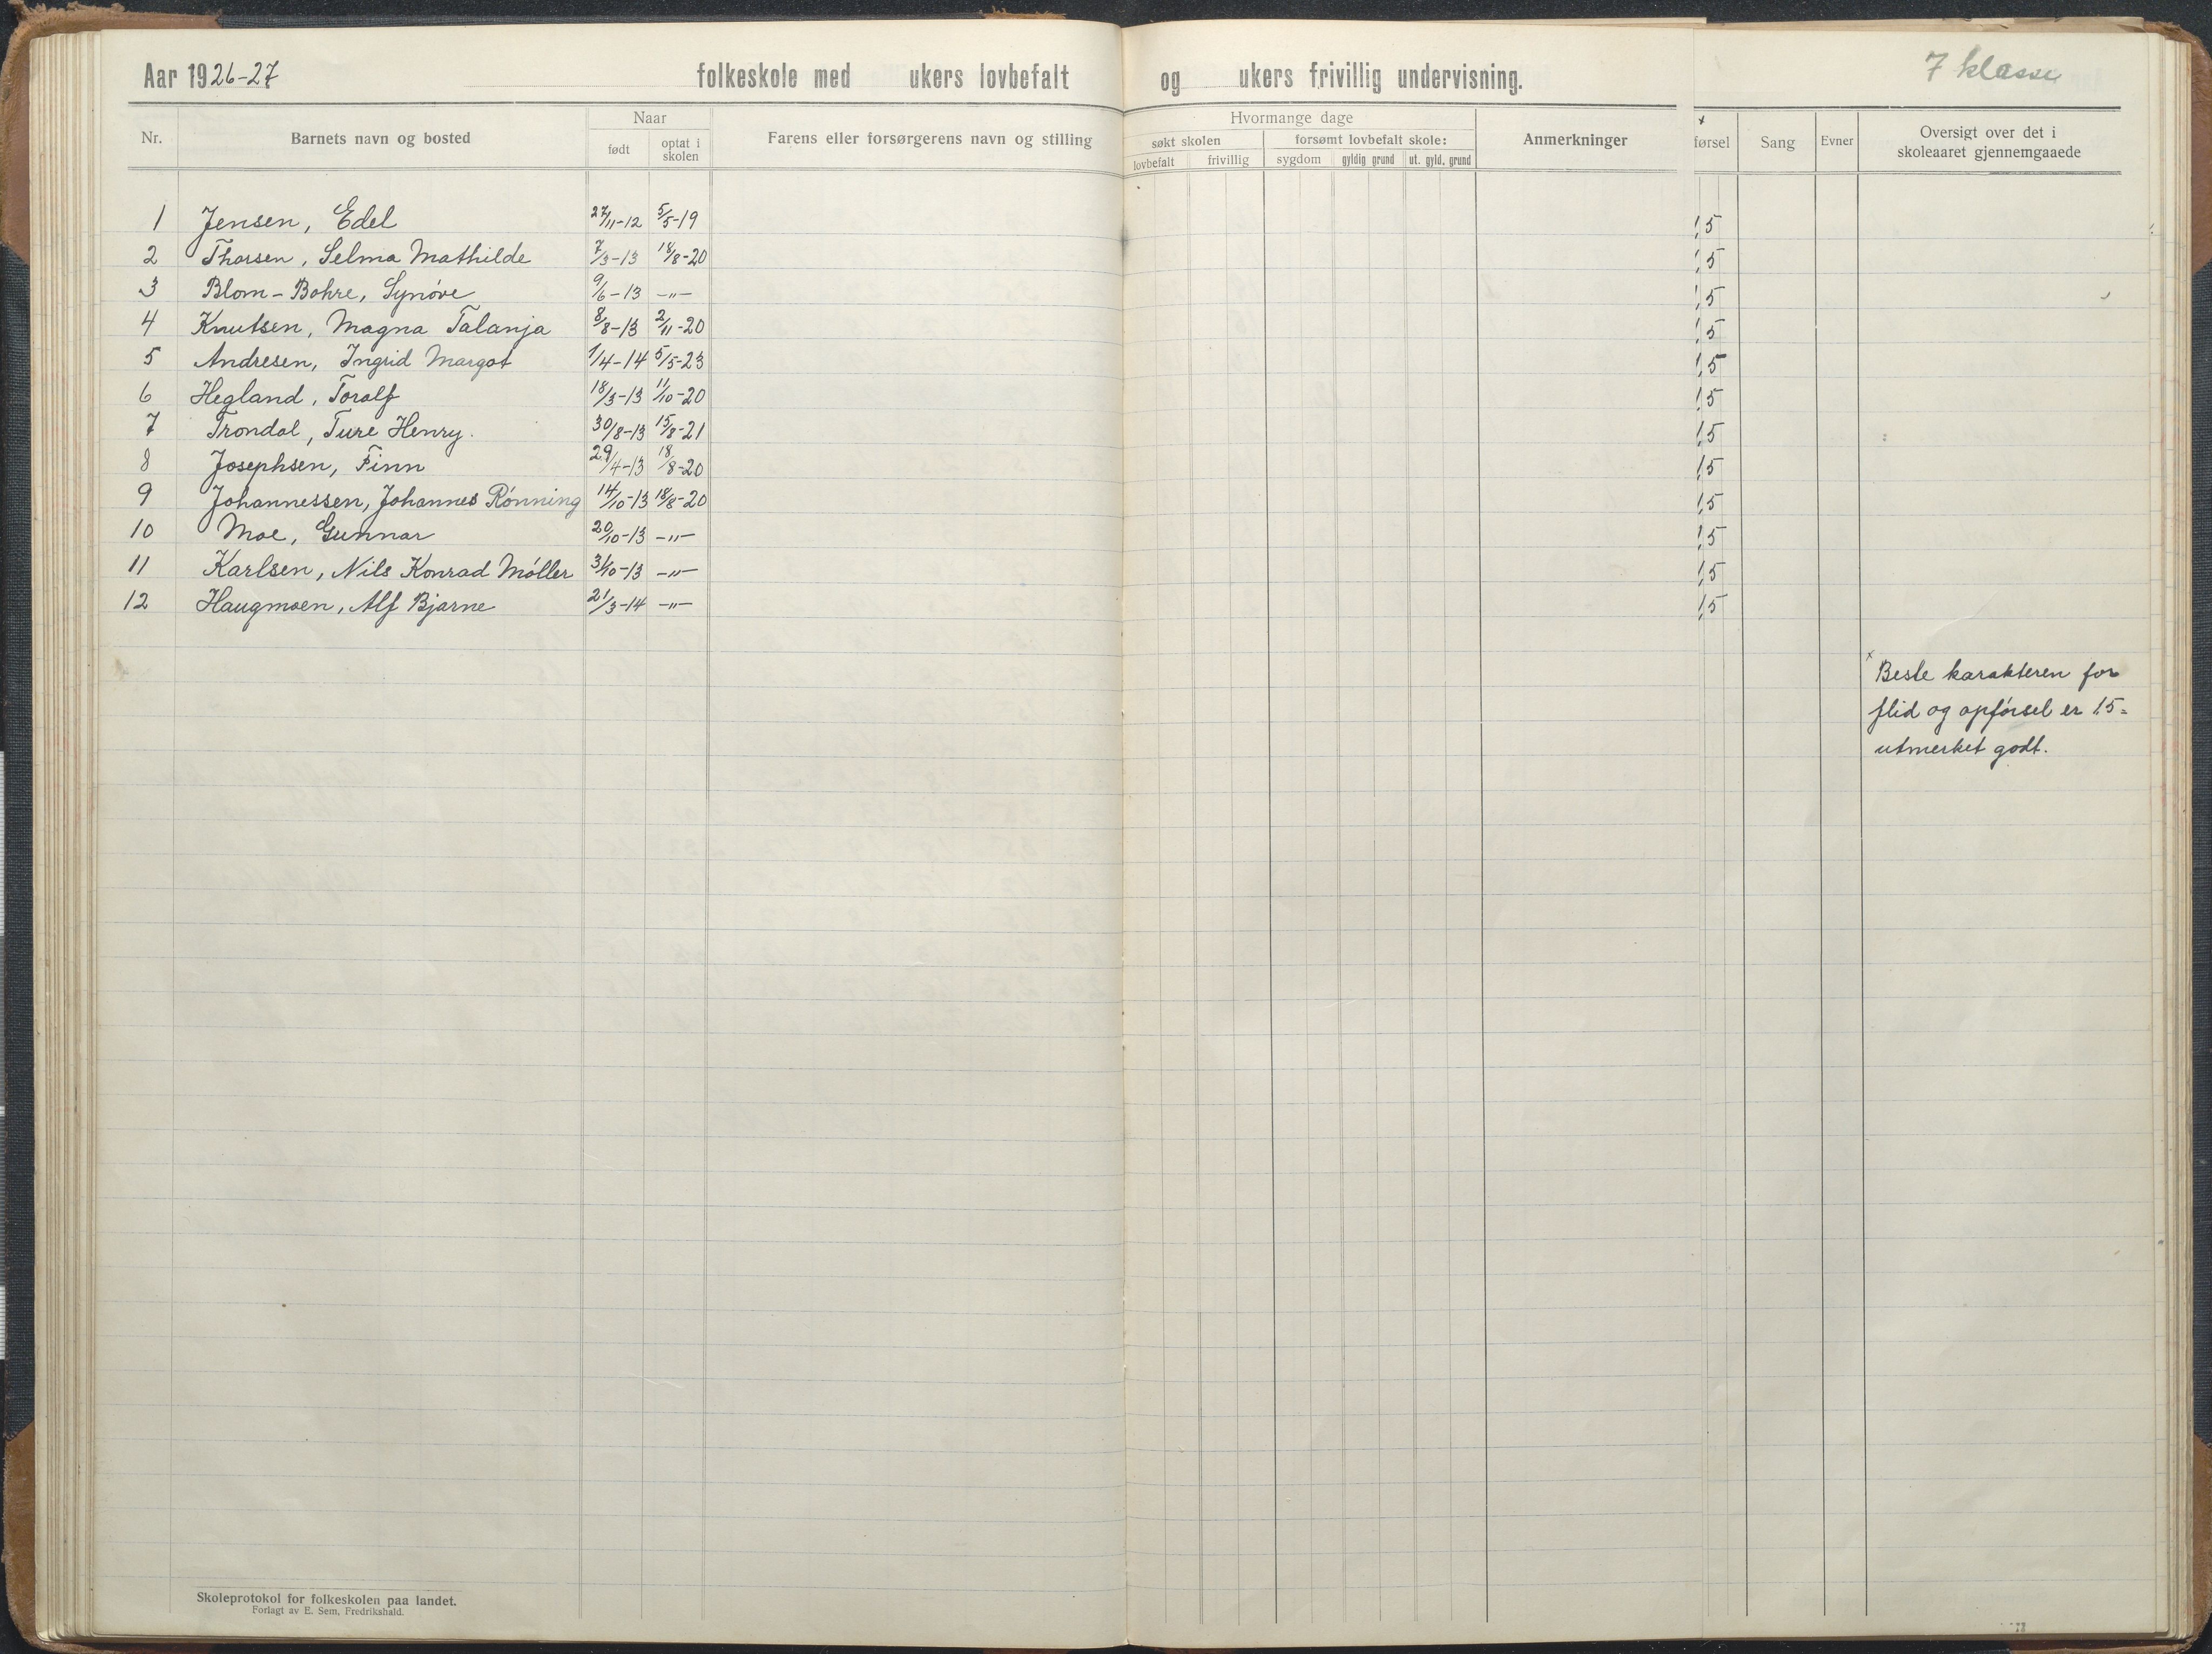 Aar 1926-27 folkeskole med ukers lovbefalt og ukers frivillig undervisning. 7 klasse
Nr. Barnets navn og bosted Naar født optat i skolen Farens eller forsørgerens navn og stilling Hvormange dage søkt skolen lovbefalt frivillig forsømt lovbefalt skole: sygdom gyldig grund ut. gyld. grund Anmerkninger førsel Sang Evner Oversigt over det i skoleaaret gjennemgaaede
1 Jensen, Edel 27/11-12 5/5-19 1,5
2 Thorsen, Selma Mathilde 7/3-13 18/8-20 1,5
3 Blom-Bohre, Synøve 9/6-13 -"- 1,5
4 Knutsen, Magna Talanja 8/8-13 2/11-20 1,5
5 Andresen, Ingrid Margot 1/4-14 5/5-23 1,5
6 Hegland, Toralf 18/3-13 11/10-20 1,5
7 Trondal, Ture Henry. 30/8-13 15/8-21 1,5
8 Josephsen, Finn 29/4-13 18/8-20 1,5
9 Johannessen, Johannes Rønning 14/10-13 18/8-20 1,5
10 Moe, Gunnar 20/10-13 -"- 1,5
11 Karlsen, Nils Konrad Møller 31/10-13 -"- 1,5
12 Haugmoen, Alf Bjarne 21/3-14 -"- 1,5
x Beste karakteren for
flid og opførsel er 1,5=
utmerket godt.
Skoleprotokol for folkeskolen paa landet.
Forlagt av E. Sem, Fredrikshald.